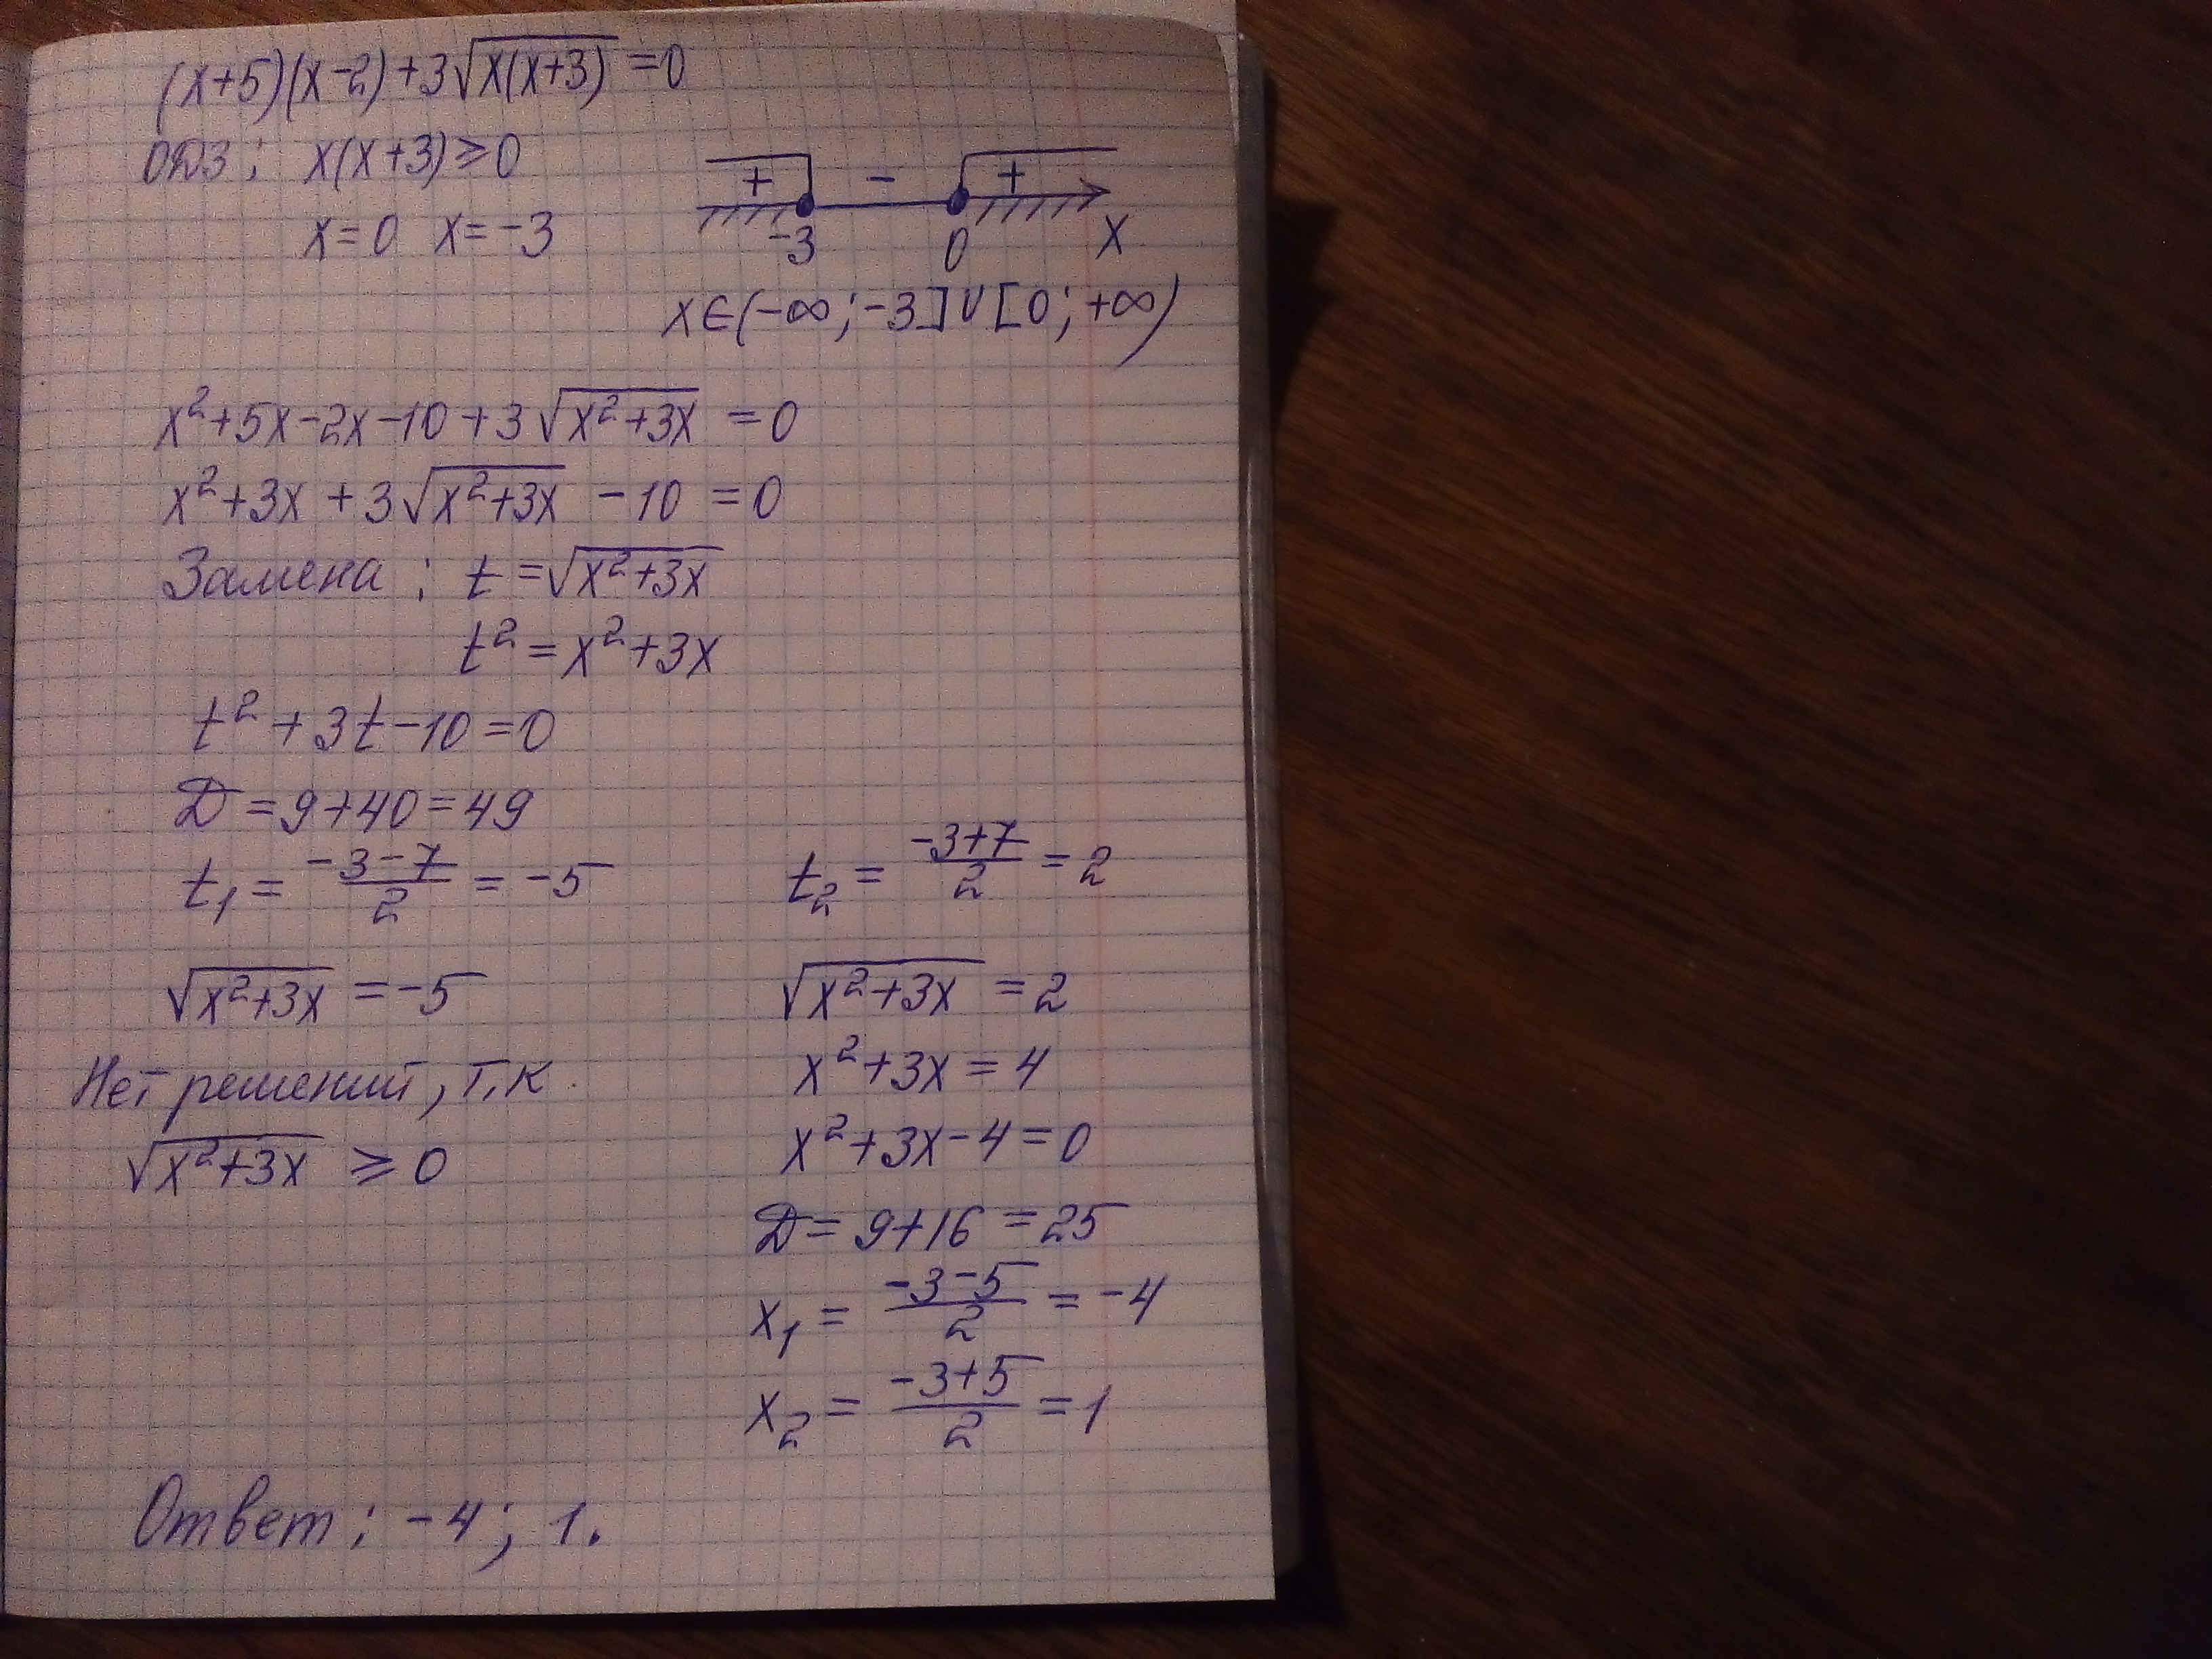 (x+5)(x-2)+3√(x(x+3)) =0
ОДЗ: x(x+3)≥0
x=0 x=-3
+ - +
-3 0 x
x∈(-∞;-3]∪[0;+∞)
x²+5x-2x-10+3√(x²+3x) =0
x²+3x+3√(x²+3x) -10=0
Замена: t=√(x²+3x)
t²=x²+3x
t²+3t-10=0
D=9+40=49
t₁=(-3-7)/2=-5 t₂=(-3+7)/2=2
√(x²+3x)=-5 √(x²+3x)=2
Нет решений, т.к x²+3x=4
√(x²+3x) ≥0 x²+3x-4=0
D=9+16=25
x₁=(-3-5)/2=-4
x₂=(-3+5)/2=1
Ответ: -4; 1.